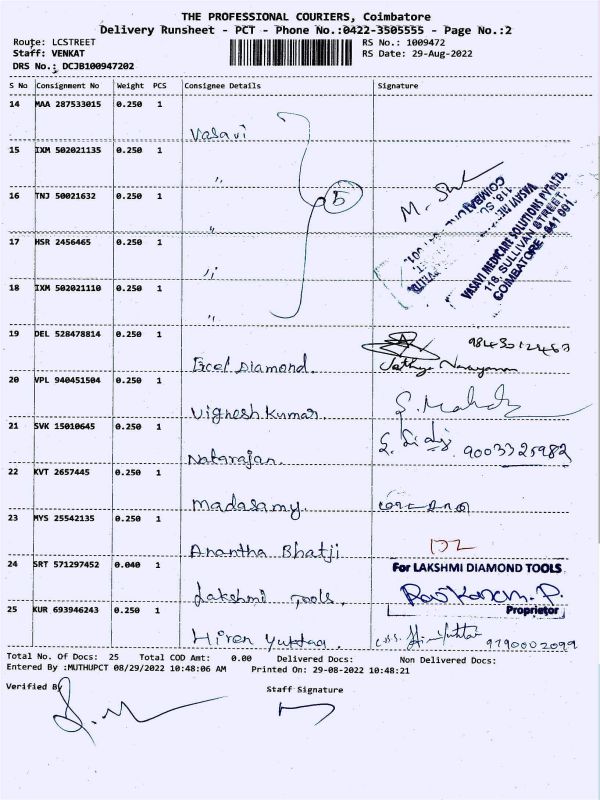 THE PROFESSIONAL COURIERS, Coimbatore
Delivery Runsheet - PCT - Phone No.:0422-3505555 - Page No.:2
Route: LCSTREET
RS No.: 1009472
Staff: VENKAT
RS Date: 29-Aug-2022
DRS No.: DCJB100947202
S No Consignment No Weight PCS Consignee Details Signature
14 MAA 287533015 0.250 1
Vasavi
15 IXM 502021135 0.250 1
"
16 TNJ 50021632 0.250 1
5
"
VASAVI MEDICARE SOLUTIONS PVT LTD.
118, SULLIVAN STREET,
COIMBATORE - 641 001.
17 HSR 2456465 0.250 1
"
18 IXM 502021110 0.250 1
"
19 DEL 528478814 0.250 1
Excel Diamond.
Sathya Narayanan
20 VPL 940451504 0.250 1
Vignesh Kumar.
21 SVK 15010645 0.250 1
Natarajan.
9003325982
22 KVT 2657445 0.250 1
Madasamy.
23 MYS 25542135 0.250 1
Anantha Bhatji
24 SRT 571297452 0.040 1
For LAKSHMI DIAMOND TOOLS
Lakshmi Tools.
Proprietor
25 KUR 693946243 0.250 1
Hiren
9790002099
Total No. Of Docs: 25 Total COD Amt: 0.00 Delivered Docs: Non Delivered Docs:
Entered By :MUTHUPCT 08/29/2022 10:48:06 AM Printed On: 29-08-2022 10:48:21
Verified By
Staff Signature